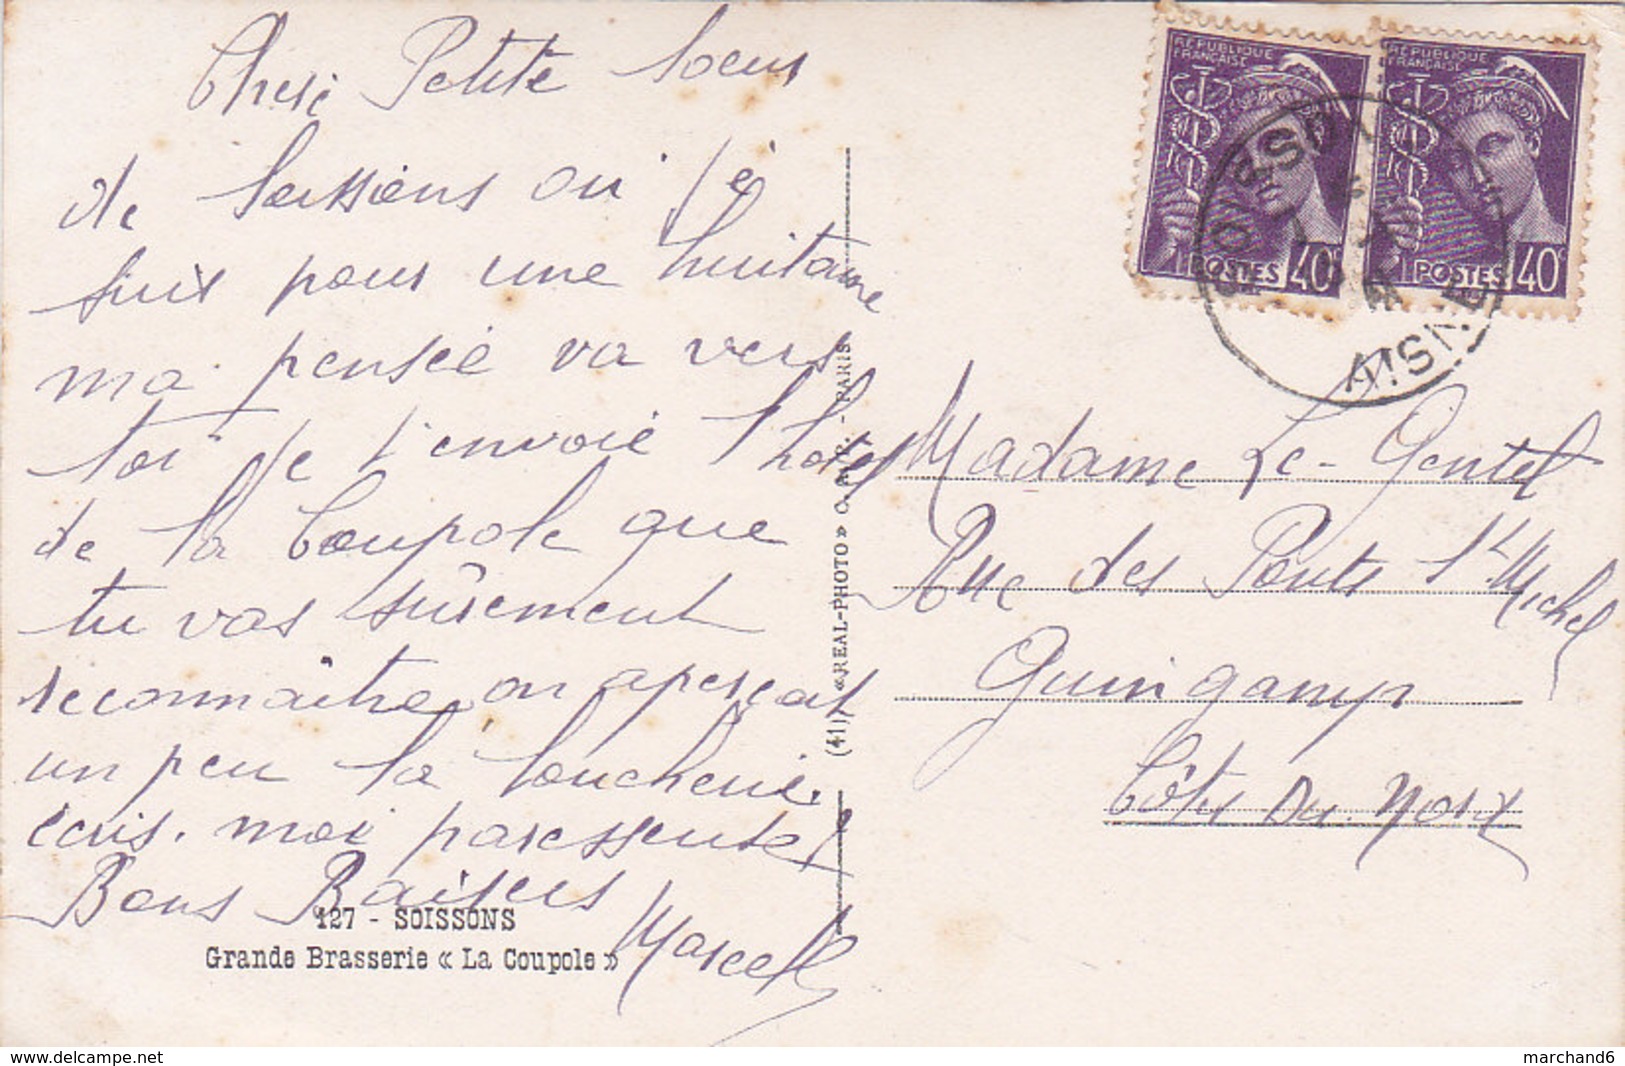 Cheré Petite soeur
de Soissons où j'é
suis pour une huitaine
ma pensée va vers
toi je t'envoie l'hotel
de la Coupole que
tu vas sûrement
reconnaître, on aperçoit
un peu la boucherie,
écris-moi paresseuse
Bons Baisers
Marcel
127 - SOISSONS
Grande Brasserie « La Coupole »
(41) «REAL-PHOTO» C. A. P. - PARIS
RÉPUBLIQUE
FRANÇAISE
POSTES 40c
RÉPUBLIQUE
FRANÇAISE
POSTES 40c
AISNE
Madame Le-Gentel
Rue des Ponts St Michel
Guingamp
Côtes du Nord
delcampe.net
marchand6